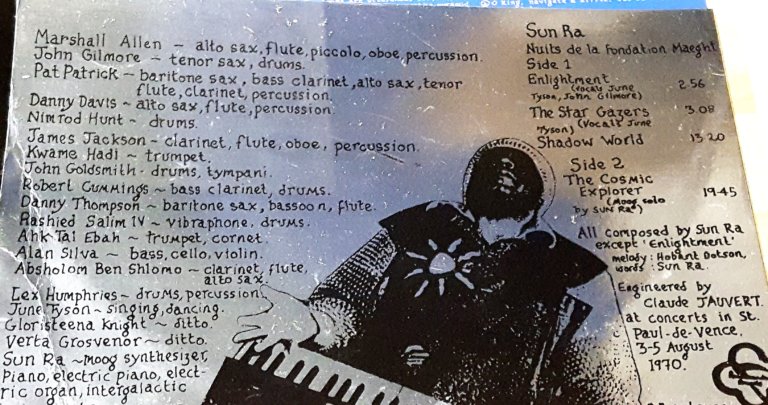 Marshall Allen ~ alto sax, flute, piccolo, oboe, percussion.
John Gilmore ~ tenor sax, drums.
Pat Patrick ~ baritone sax, bass clarinet, alto sax, tenor
flute, clarinet, percussion.
Danny Davis ~ alto sax, flute, percussion.
Nimrod Hunt ~ drums.
James Jackson ~ clarinet, flute, oboe, percussion.
Kwame Hadi ~ trumpet.
John Goldsmith - drums, tympani.
Robert Cummings ~ bass clarinet, drums.
Danny Thompson ~ baritone sax, bassoon, flute.
Rashied Salim IV ~ vibraphone, drums.
Ahk Tal Ebah ~ trumpet, cornet.
Alan Silva ~ bass, cello, violin.
Absholom Ben Shlomo ~ clarinet, flute,
alto sax
Lex Humphries ~ drums, percussion.
June Tyson ~ singing, dancing.
Gloristeena Knight ~ ditto.
Verta Grosvenor ~ ditto.
Sun Ra ~ moog synthesizer,
piano, electric piano, elect-
ric organ, intergalactic
Sun Ra
Nuits de la Fondation Maeght
Side 1
Enlightment 2.56
(vocals June
Tyson, John Gilmore)
The Star Gazers 3.08
(Vocals June
Tyson)
Shadow World 13 20
Side 2
The Cosmic
Explorer 19.45
(Moog solo
by SUN Ra)
All composed by Sun Ra
except 'Enlightment'
melody: Hobart Dotson,
words: Sun Ra.
Engineered by
Claude JAUVERT.
at concerts in St.
Paul-de-Vence.
3-5 August
1970.